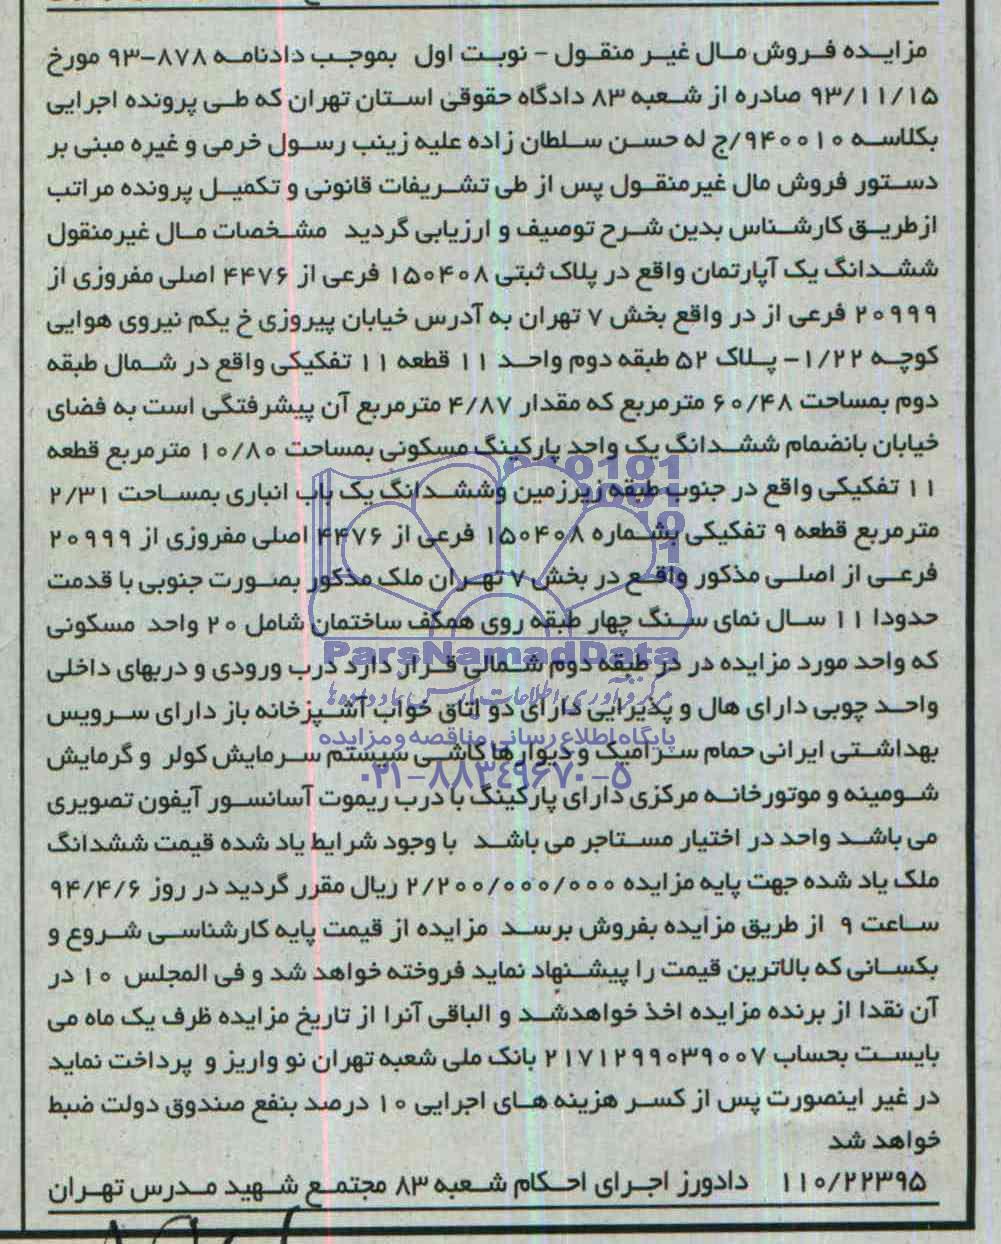 مزایده فروش مال غیر منقول – نوبت اول بموجب دادنامه ۸۷۸-۹۳ مورخ
۹۳/۱۱/۱۵ صادره از شعبه ۸۳ دادگاه حقوقی استان تهران که طی پرونده اجرایی
بکلاسه ۹۴۰۰۱۰/ج له حسن سلطان زاده علیه زینب رسول خرمی و غیره مبنی بر
دستور فروش مال غیرمنقول پس از طی تشریفات قانونی و تکمیل پرونده مراتب
ازطریق کارشناس بدین شرح توصیف و ارزیابی گردید مشخصات مال غیرمنقول
ششدانگ یک آپارتمان واقع در پلاک ثبتی ۱۵۰۴۰۸ فرعی از ۴۴۷۶ اصلی مفروزی از
۲۰۹۹۹ فرعی از در واقع بخش ۷ تهران به آدرس خیابان پیروزی خ یکم نیروی هوایی
کوچه ۱/۲۲- پلاک ۵۲ طبقه دوم واحد ۱۱ قطعه ۱۱ تفکیکی واقع در شمال طبقه
دوم بمساحت ۶۰/۴۸ مترمربع که مقدار ۴/۸۷ مترمربع آن پیشرفتگی است به فضای
خیابان بانضمام ششدانگ یک واحد پارکینگ مسکونی بمساحت ۱۰/۸۰ مترمربع قطعه
۱۱ تفکیکی واقع در جنوب طبقه زیرزمین وششدانگ یک باب انباری بمساحت ۲/۳۱
مترمربع قطعه ۹ تفکیکی بشماره ۱۵۰۴۰۸ فرعی از ۴۴۷۶ اصلی مفروزی از ۲۰۹۹۹
فرعی از اصلی مذکور واقع در بخش ۷ تهران ملک مذکور بصورت جنوبی با قدمت
حدودا ۱۱ سال نمای سنگ چهار طبقه روی همکف ساختمان شامل ۲۰ واحد مسکونی
که واحد مورد مزایده در در طبقه دوم شمالی قرار دارد درب ورودی و دربهای داخلی
ParsNamadData
واحد چوبی دارای هال و پذیرایی دارای دو اتاق خواب آشپزخانه باز دارای سرویس
مرکز فرآوری اطلاعات پارس نماد داده‌ها
پایگاه اطلاع رسانی مناقصه و مزایده
بهداشتی ایرانی حمام سرامیک و دیوارها کاشی سیستم سرمایش کولر و گرمایش
۰۲۱-۸۸۳۴۹۶۷۰-۵
شومینه و موتورخانه مرکزی دارای پارکینگ با درب ریموت آسانسور آیفون تصویری
می باشد واحد در اختیار مستاجر می باشد با وجود شرایط یاد شده قیمت ششدانگ
ملک یاد شده جهت پایه مزایده ۲/۲۰۰/۰۰۰/۰۰۰ ریال مقرر گردید در روز ۹۴/۴/۶
ساعت ۹ از طریق مزایده بفروش برسد مزایده از قیمت پایه کارشناسی شروع و
بکسانی که بالاترین قیمت را پیشنهاد نماید فروخته خواهد شد و فی المجلس ۱۰ در
آن نقدا از برنده مزایده اخذ خواهدشد و الباقی آنرا از تاریخ مزایده ظرف یک ماه می
بایست بحساب ۲۱۷۱۲۹۹۰۳۹۰۰۷ بانک ملی شعبه تهران نو واریز و پرداخت نماید
در غیر اینصورت پس از کسر هزینه های اجرایی ۱۰ درصد بنفع صندوق دولت ضبط
خواهد شد
۱۱۰/۲۲۳۹۵ دادورز اجرای احکام شعبه ۸۳ مجتمع شهید مدرس تهران